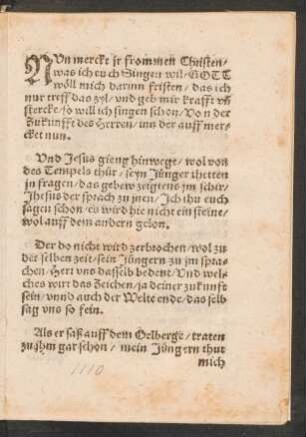 NUn mercke jr frommen Christen/
was ich euch Singen wil/GOTT
wöll mich darum fristen/das ich
nur treff das zyl/und geb mir krafft uñ
stercke/so will ich singen schon/Von der
Zukunfft des Herren/uns der auff mer-
cket nun.
Und Jesus gieng hinwege/wol von
des Tempels thür/seyn Jünger thetten
jn fragen/das gebew zeigtens jm schir/
Jhesus der sprach zu jnen/Ich thu euch
sagen schon/es wird hie nicht ein steine/
wol auff dem andern gelon.
Der do nicht wird zerbrochen/wol zu
der selben zeit/sein Jüngern zu jm spra-
chen/Herr uns dasselb bedeut/Und wel-
ches wirt das Zeichen/ja deiner zukunft
sein/unnd auch der Welte ende/das selb
sag uns so fein.
Als er saß auff dem Oelberge/traten
zu jhm gar schon/mein Jüngern thut
mich
1110